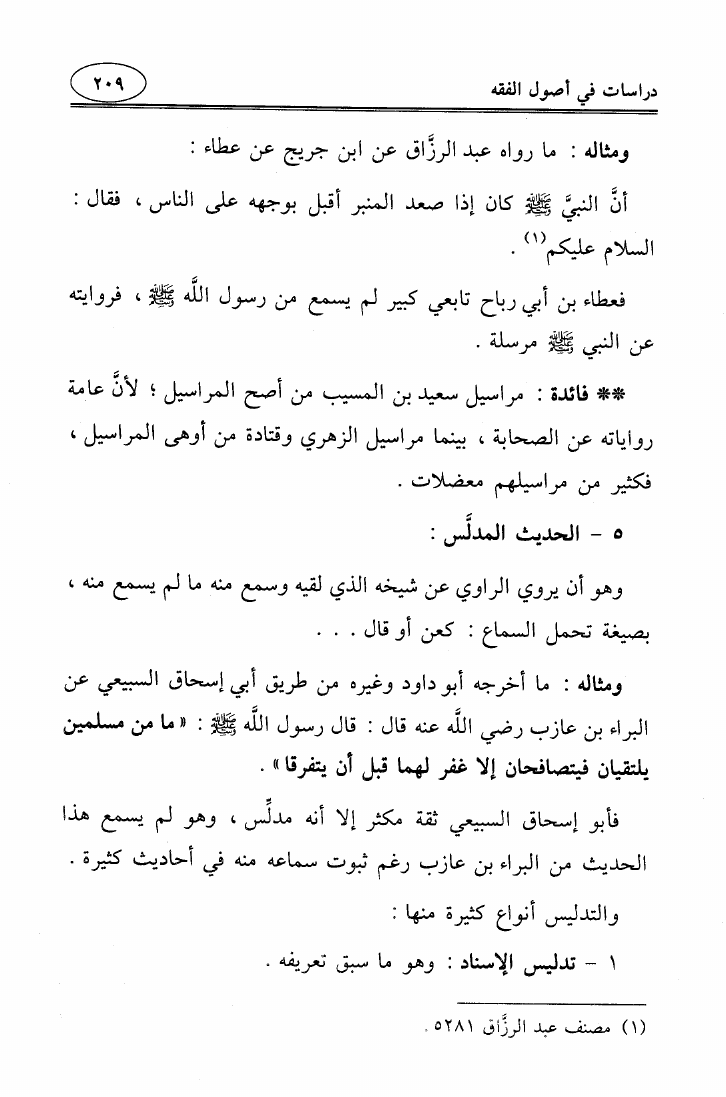 دراسات في أصول الفقه
٢٠٩
ومثاله : ما رواه عبد الرزَّاق عن ابن جريج عن عطاء :
أنَّ النبيَّ ﷺ كان إذا صعد المنبر أقبل بوجهه على الناس ، فقال :
السلام عليكم(١) .
فعطاء بن أبي رباح تابعي كبير لم يسمع من رسول اللَّه ﷺ ، فروايته
عن النبي ﷺ مرسلة .
** فائدة : مراسيل سعيد بن المسيب من أصح المراسيل ؛ لأنَّ عامة
رواياته عن الصحابة ، بينما مراسيل الزهري وقتادة من أوهى المراسيل ،
فكثير من مراسيلهم معضلات .
٥ - الحديث المدلَّس :
وهو أن يروي الراوي عن شيخه الذي لقيه وسمع منه ما لم يسمع منه ،
بصيغة تحمل السماع : كعن أو قال . . .
ومثاله : ما أخرجه أبو داود وغيره من طريق أبي إسحاق السبيعي عن
البراء بن عازب رضي اللَّه عنه قال : قال رسول اللَّه ﷺ : «ما من مسلمين
يلتقيان فيتصافحان إلا غفر لهما قبل أن يتفرقا» .
فأبو إسحاق السبيعي ثقة مكثر إلا أنه مدلِّس ، وهو لم يسمع هذا
الحديث من البراء بن عازب رغم ثبوت سماعه منه في أحاديث كثيرة .
والتدليس أنواع كثيرة منها :
١ - تدليس الإسناد : وهو ما سبق تعريفه .
(١) مصنف عبد الرزَّاق ٥٢٨١ .